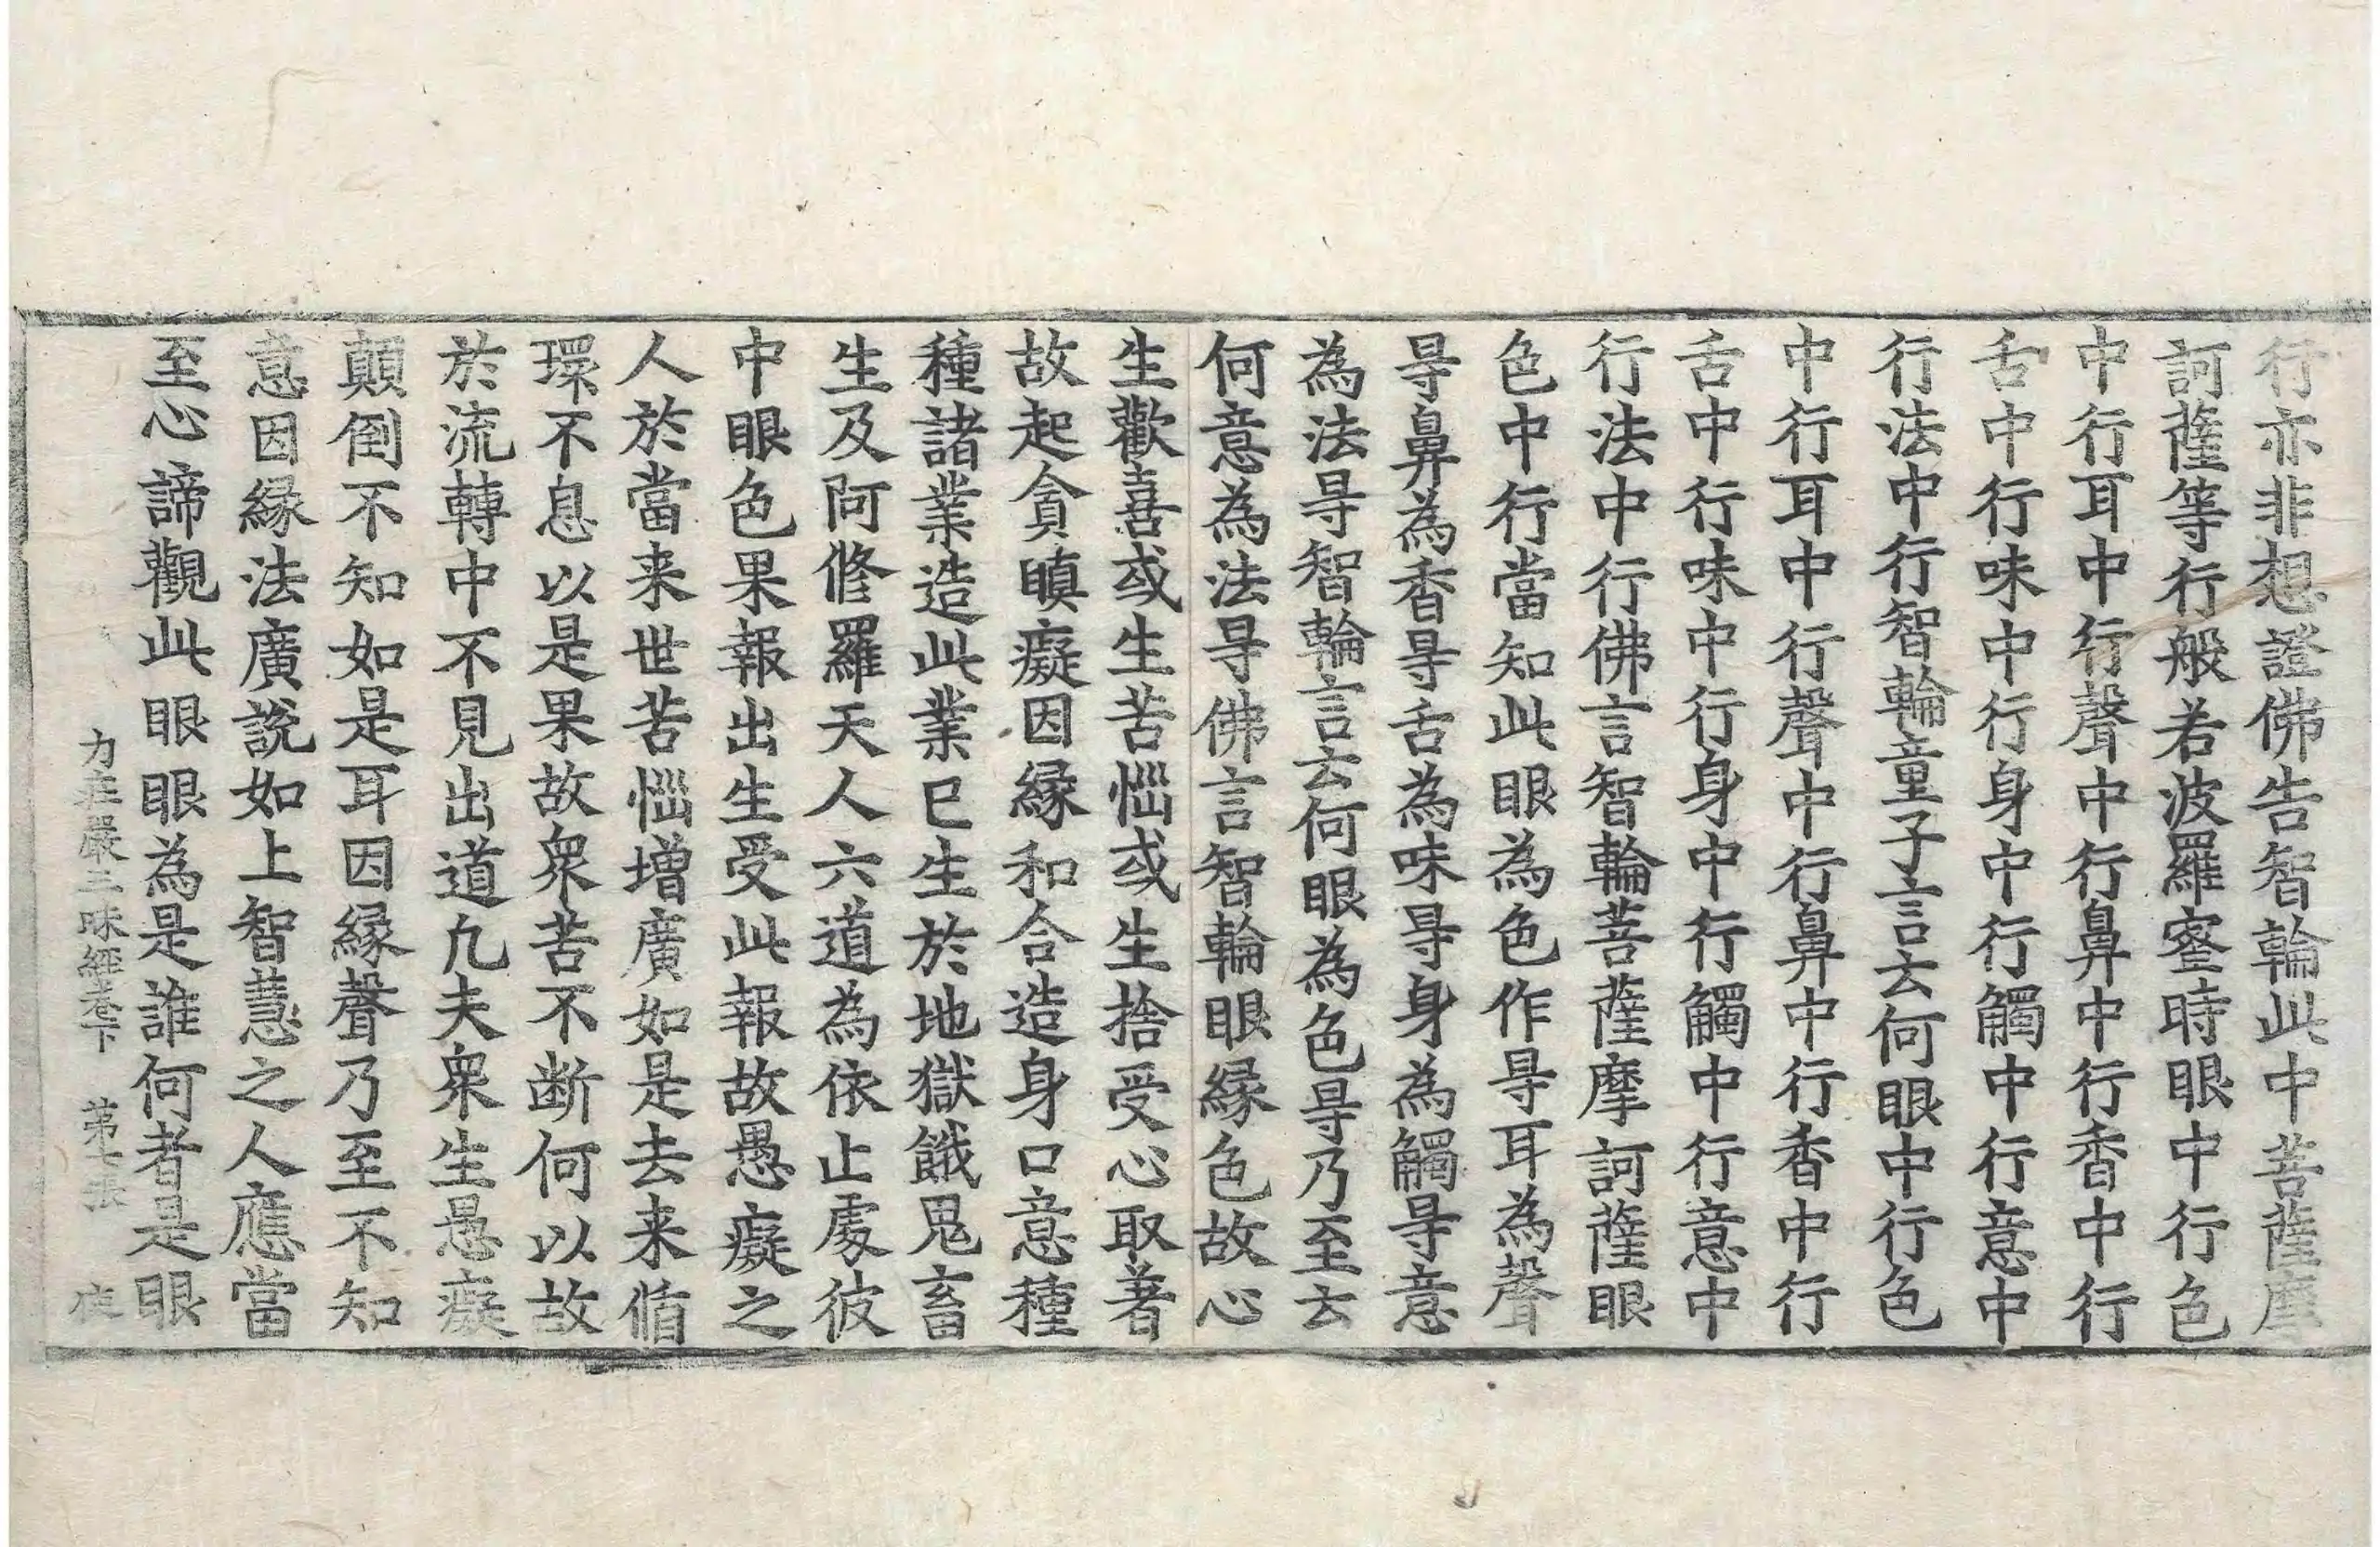 行亦非想證佛告智輪此中菩薩摩
訶薩等行般若波羅蜜時眼中行色
中行耳中行聲中行鼻中行香中行
舌中行味中行身中行觸中行意中
行法中行智輪童子言去何眼中行色
中行耳中行聲中行鼻中行香中行
舌中行味中行身中行觸中行意中
行法中行佛言智輪菩薩摩訶薩眼
色中行當知此眼為色作㝵耳為聲
㝵鼻為香㝵舌為味㝵身為觸㝵意
為法㝵智輪言去何眼為色㝵乃至去
何意為法㝵佛言智輪眼縁色故心
生歡喜或生苦惱或生捨受心取著
故起貪瞋癡因縁和合造身口意種
種諸業造此業已生於地獄餓鬼畜
生及阿修羅天人六道為依止處彼
中眼色果報出生受此報故愚癡之
人於當来世苦惱增廣如是去来循
環不息以是果故衆苦不断何以故
於流轉中不見出道凡夫衆生愚癡
顛倒不知如是耳因縁聲乃至不知
意因縁法廣說如上智慧之人應當
至心諦觀此眼眼為是誰何者是眼
力莊嚴三昧經卷下 第七張